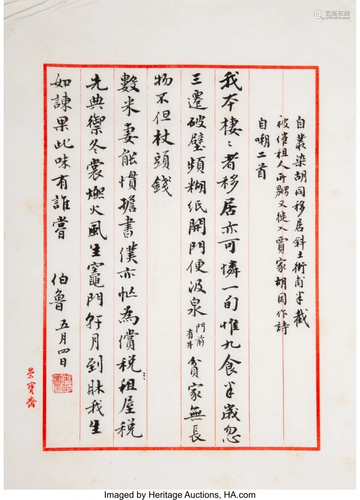 自叢染胡同移居斜土街甫半載
被催租人所嬲又徙入賈家胡同作詩
自嘲二首
我本棲〻者移居亦可憐一旬惟九食半歲忽
三遷破壁頻糊紙開門便汲泉門前有井貧家無長
物不但杖頭錢
數米妻能慣擔書僕亦忙為償租屋税
先典禦冬裳火風生竈月到牀我生
如諫果此味有誰嘗 伯魯 五月四日
榮寶齋
Imaged by Heritage Auctions, HA.com